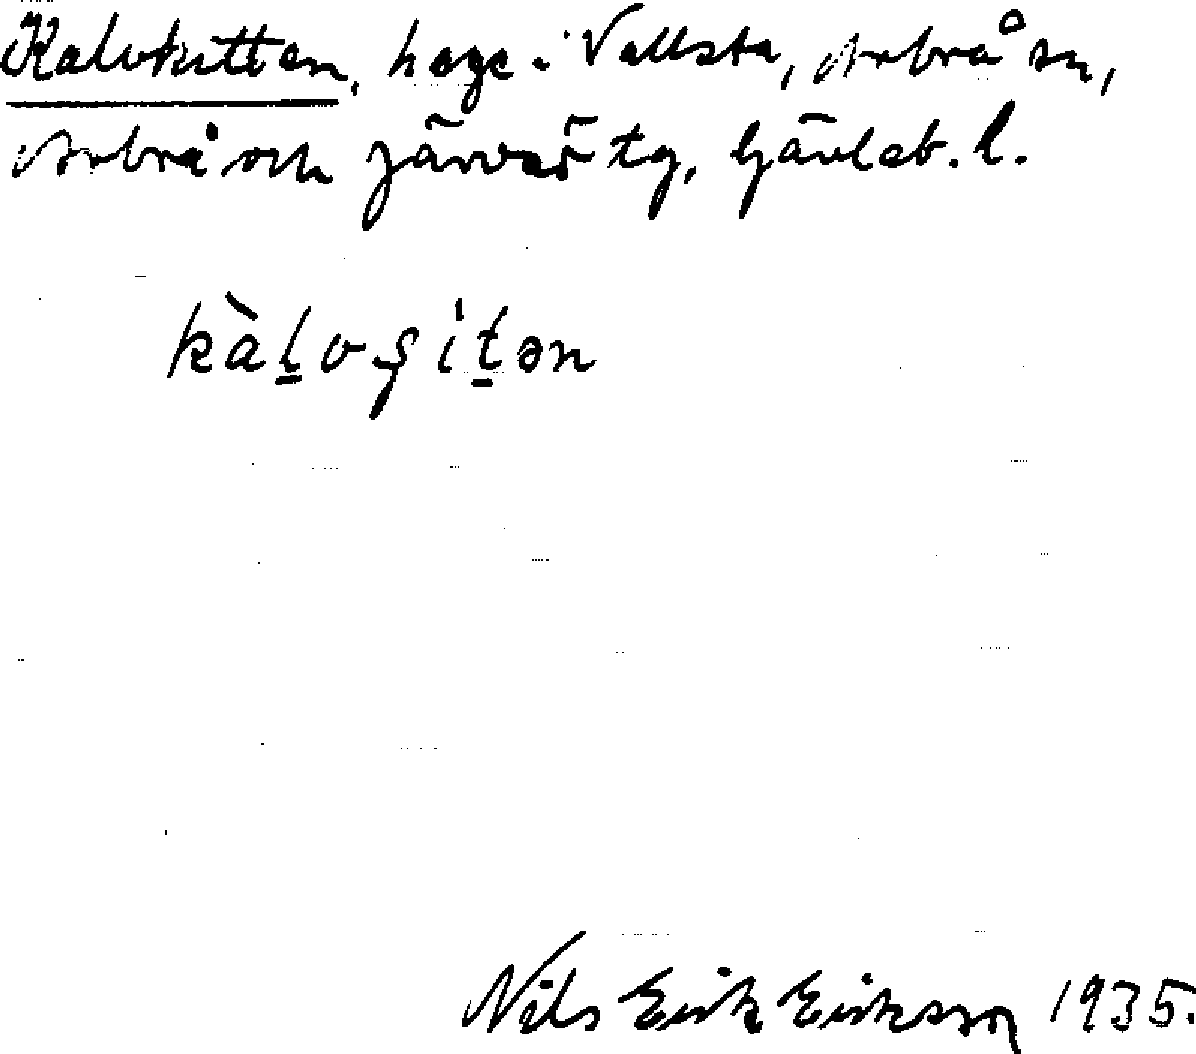 Kalvkitten, hage i Vallsta, Arbrå sn,
Arbrå och Järvsö tg, Gävleb. l.
kàḻvşiṯən
Nils Erik Eriksson 1935.